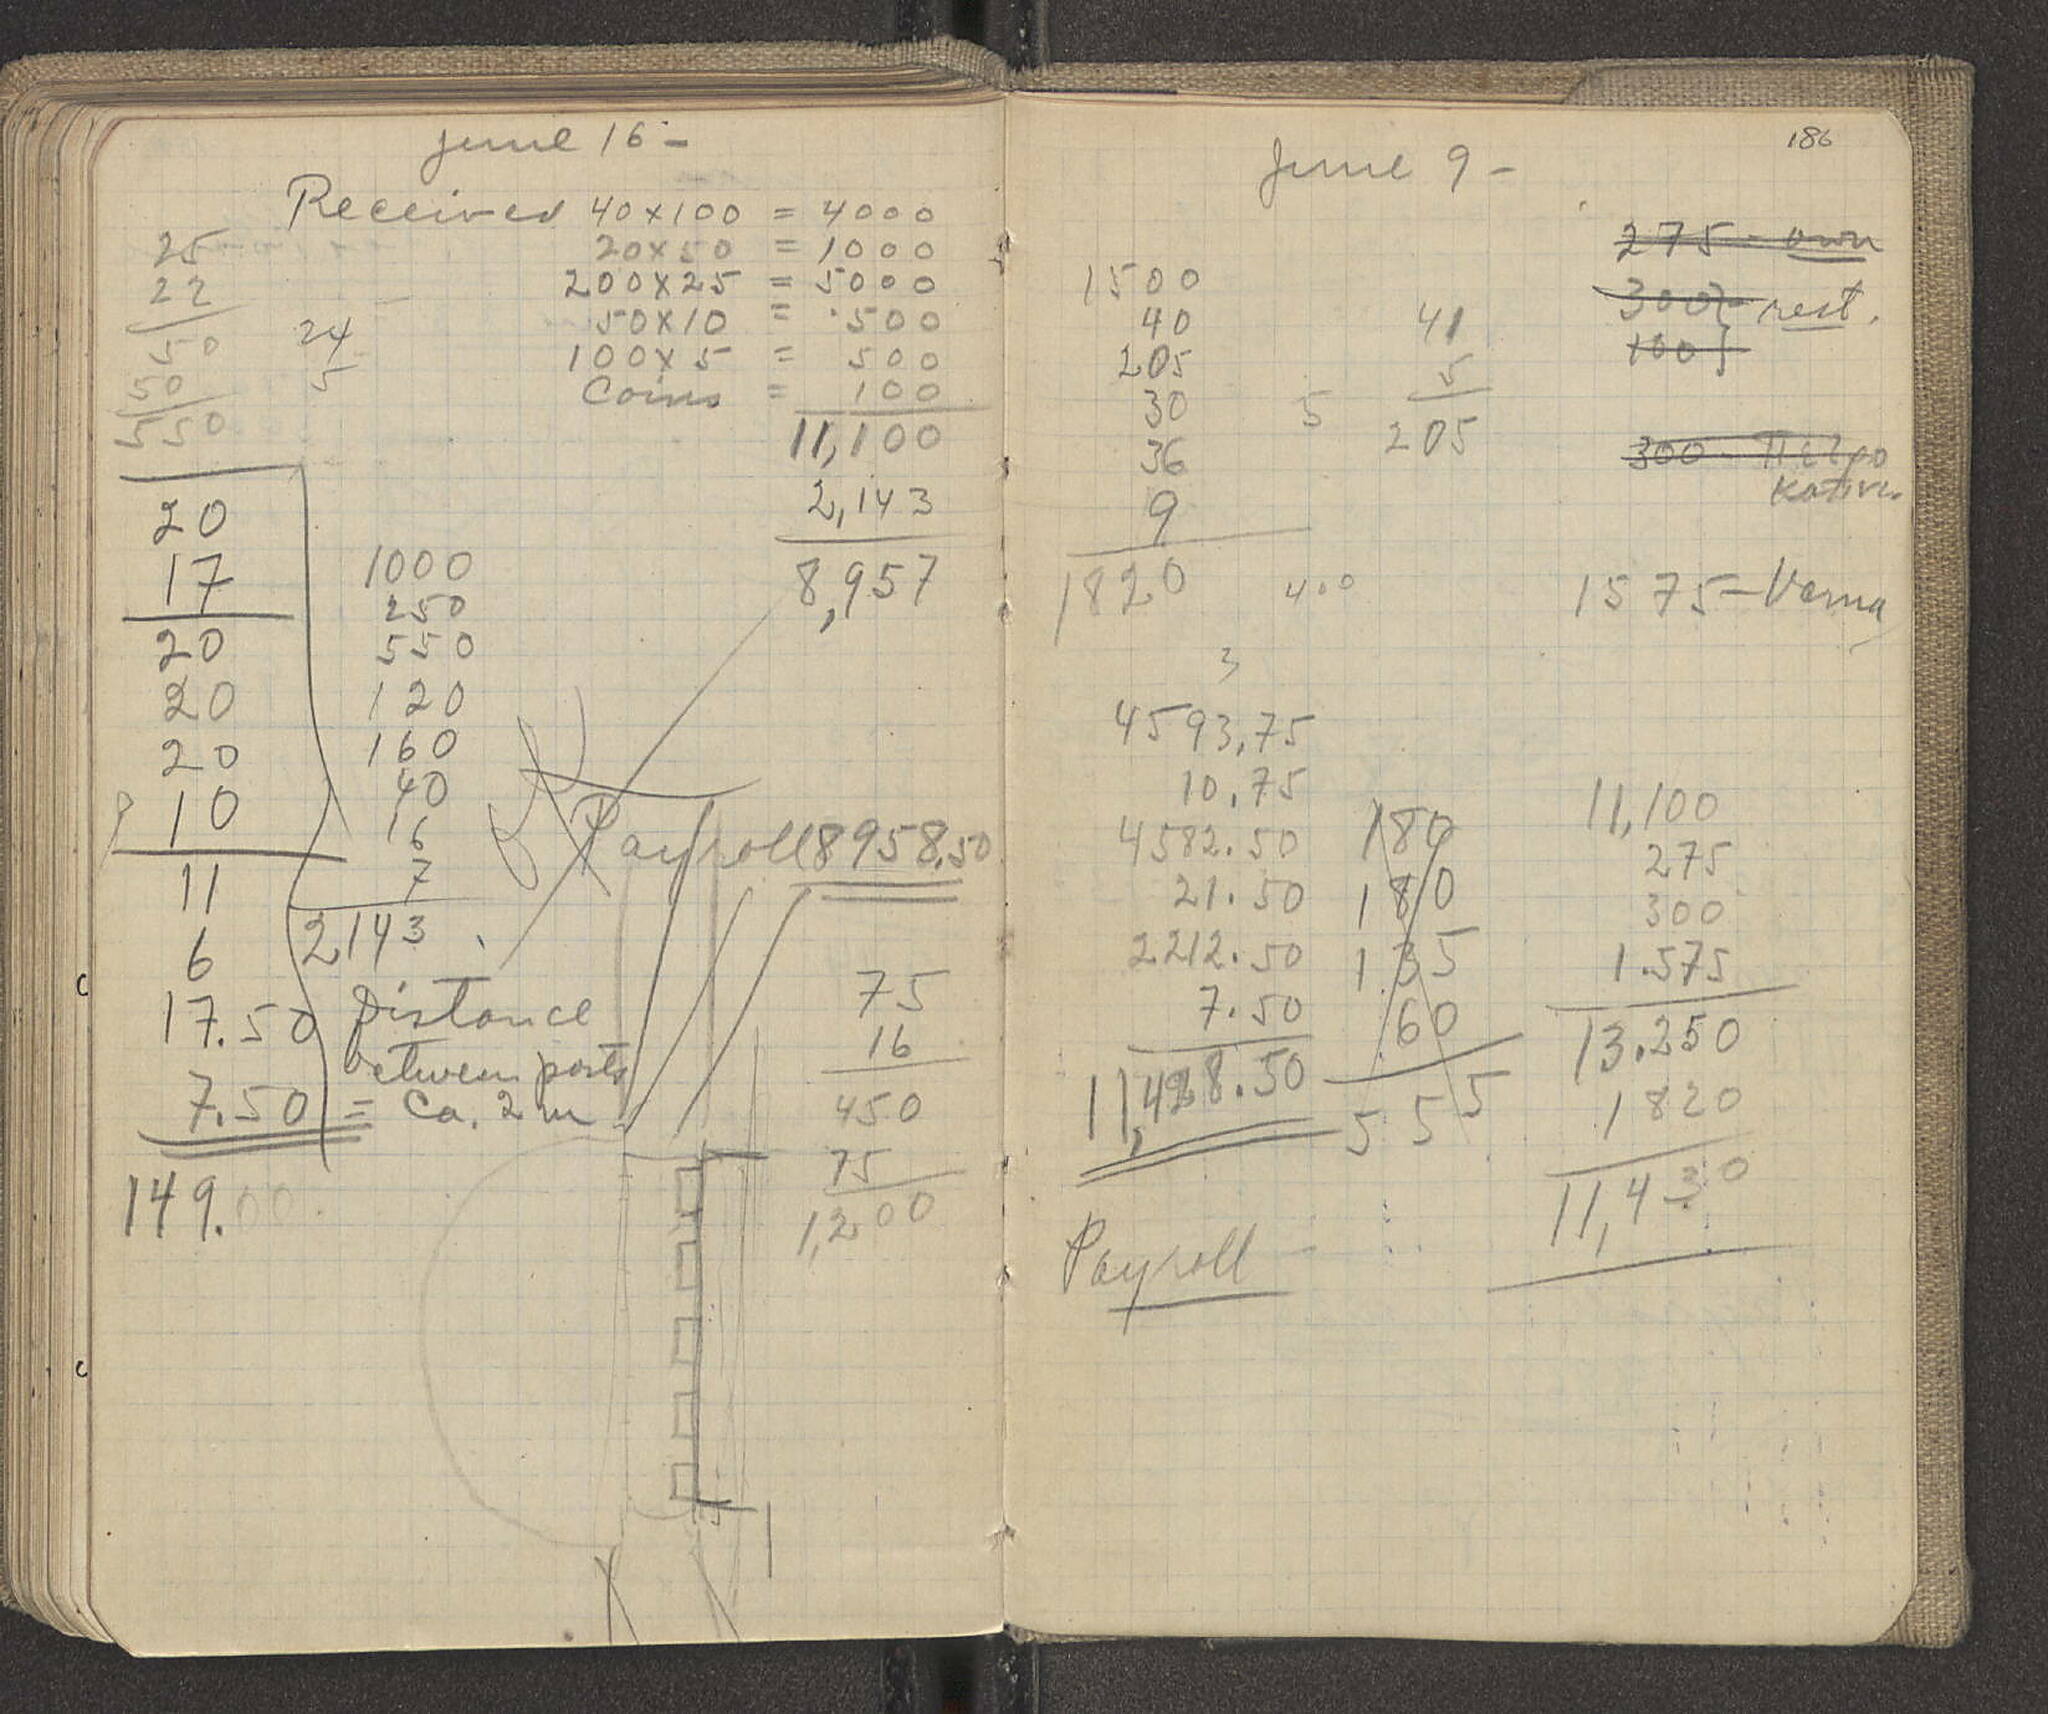 June 16 -
Received 40 x 100 = 4000
20 x 50 = 1000
200 x 25 = 5000
50 x 10 = 500
100 x 5 = 500
Coins = 100
11,100
2,143
8,957
25
22
50
50
550
24
5
20
17
20
20
20
10
11
6
17.50
7.50
149.00
1000
250
550
120
160
40
16
7
2143
Payroll 8958.50
Distance
between posts
= Ca. 2 m
75
16
450
75
1,200
186
June 9 -
1500
40
205
30
36
9
1820
5
41
5
205
400
275 - own
300} - rest.
100}
300 -
1575 - Varna
3
4593,75
10,75
4582.50
21.50
2212.50
7.50
11,428.50
180
180
135
60
555
11,100
275
300
1.575
13.250
1820
11,430
Payroll